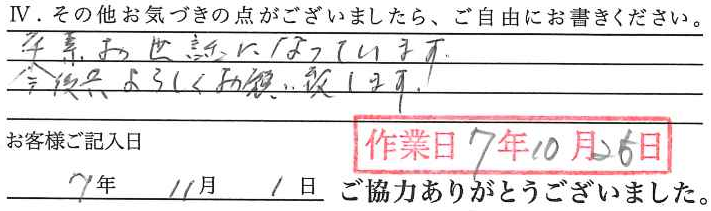 Ⅳ．その他お気づきの点がございましたら、ご自由にお書きください。
平素お世話になっています。
今後共よろしくお願い致します。
お客様ご記入日
作業日 7年10月26日
7年 11月 1日 ご協力ありがとうございました。